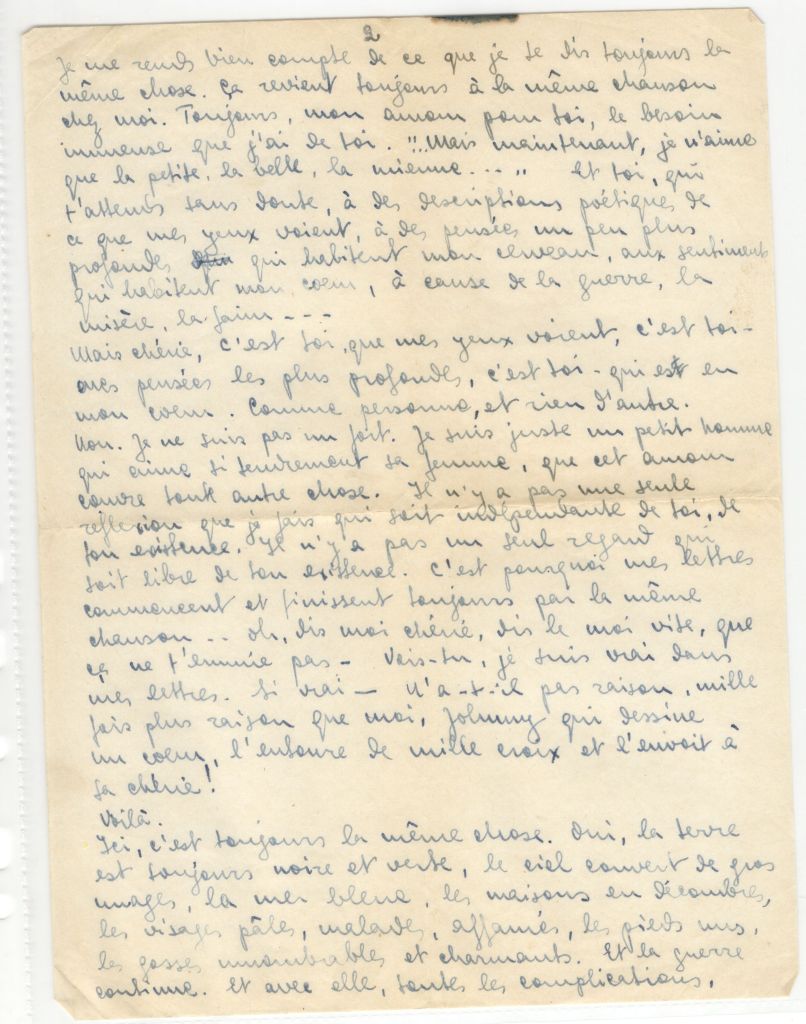 2
Je me rends bien compte de ce que je te dis toujours la
même chose. Ça revient toujours à la même chanson
chez moi. Toujours, mon amour pour toi, le besoin
immense que j'ai de toi. "...Mais maintenant, je n'aime
que la petite, la belle, la mienne... " Et toi, qui
t'attends sans doute, à des descriptions poétiques de
ce que mes yeux voient, à des pensées un peu plus
profondes qui habitent mon cerveau, aux sentiments
qui habitent mon coeur, à cause de la guerre, la
misère, la faim - - -
Mais chérie, c'est toi, que mes yeux voient, c'est toi -
mes pensées les plus profondes, c'est toi - qui est en
mon coeur. Comme personne, et rien d'autre.
Non. Je ne suis pas un fort. Je suis juste un petit homme
qui aime si tendrement sa femme, que cet amour
couvre tout autre chose. Il n'y a pas une seule
reflexion que je fais qui soit indépendante de toi, de
ton existence. Il n'y a pas un seul regard qui
soit libre de ton existence. C'est pourquoi mes lettres
commencent et finissent toujours par la même
chanson - - Oh, dis moi chérie, dis le moi vite, que
ça ne t'ennuie pas - Vois-tu, je suis vrai dans
mes lettres. Si vrai — N'a-t-il pas raison, mille
fois plus raison que moi, Johnny qui dessine
un coeur, l'entoure de mille croix et l'envoit à
sa chérie!
Voilà.
Ici, c'est toujours la même chose. Oui, la terre
est toujours noire et verte, le ciel couvert de gros
nuages, la mer bleue, les maisons en décombres,
les visages pâles, malades, affamés, les pieds nus,
les gosses innombrables et charmants. Et la guerre
continue. Et avec elle, toutes les complications,